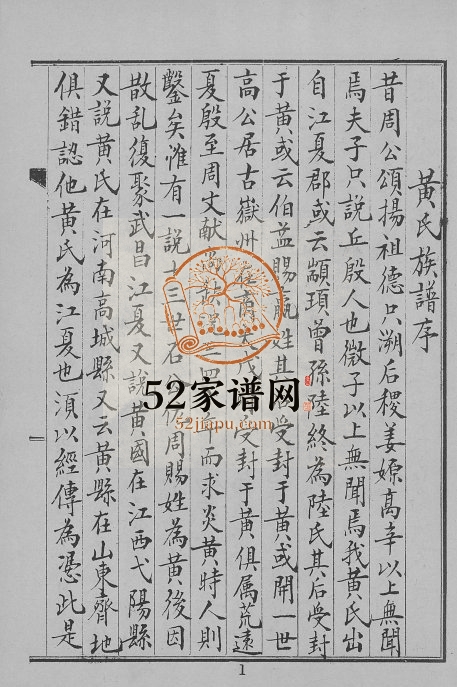 黃氏族譜序
昔周公頌揚祖德只溯后稷姜嫄高辛以上無聞
焉夫子只說丘殷人也微子以上無聞焉我黃氏出
自江夏郡或云顓頊曾孫陸終為陸氏其后受封
于黃或云伯益賜嬴姓其受封于黃或開一世
高公居古嶽州受封于黃俱属荒遠
夏殷至周文献而求炎黃時人則
鑿矣惟有一說十三世石公周賜姓為黃後因
散乱復聚武昌江夏又說黃國在江西弋陽縣
又說黃氏在河南高城縣又云黃縣在山東齊地
俱錯認他黃氏為江夏也湏以經傳為憑此是
52家谱网
52jiapu.com
1